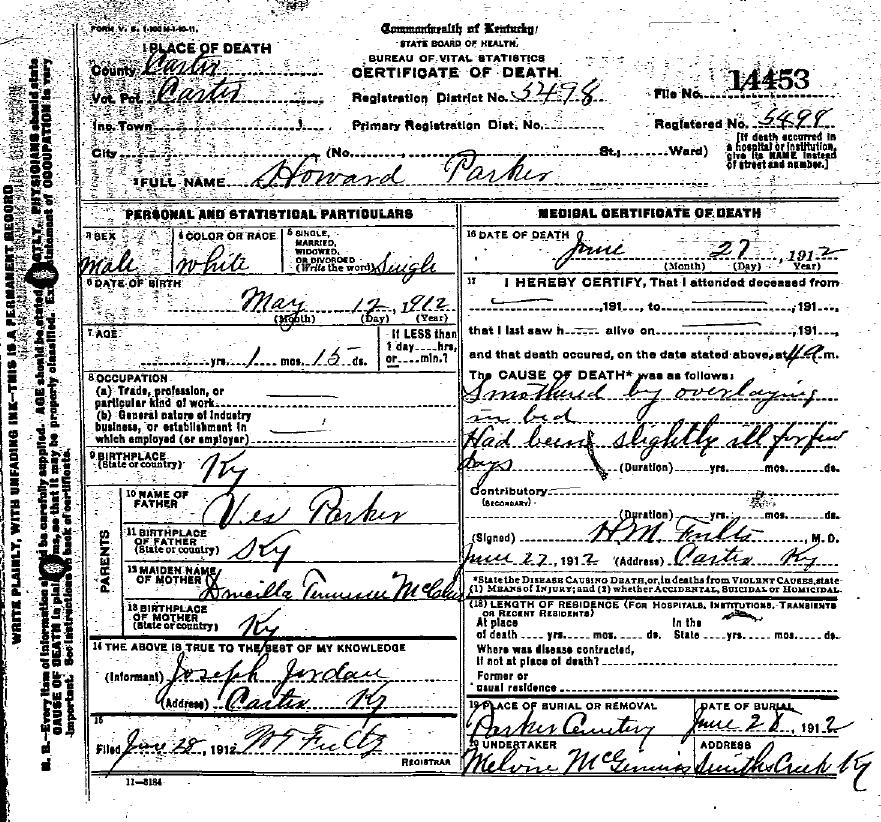 FORM V. S. 1-
Commonwealth of Kentucky
STATE BOARD OF HEALTH.
BUREAU OF VITAL STATISTICS
CERTIFICATE OF DEATH
1 PLACE OF DEATH
County Carter
Vot. Pct. Carter
Registration District No. 5498
File No. 14453
Inc. Town
Primary Registration Dist. No.
Registered No. 5498
City (No. , St., Ward)
[If death occurred in a hospital or institution, give its NAME instead of street and number.]
2 FULL NAME Howard Parker
PERSONAL AND STATISTICAL PARTICULARS
3 SEX
Male
4 COLOR OR RACE
white
5 SINGLE, MARRIED, WIDOWED, OR DIVORCED
(Write the word) Single
6 DATE OF BIRTH
May 12, 1912
(Month) (Day) (Year)
7 AGE
yrs. 1 mos. 15 ds.
If LESS than 1 day hrs. or min.?
8 OCCUPATION
(a) Trade, profession, or
particular kind of work
(b) General nature of industry
business, or establishment in
which employed (or employer)
9 BIRTHPLACE
(State or country) Ky
PARENTS
10 NAME OF
FATHER Ves Parker
11 BIRTHPLACE
OF FATHER
(State or country) Ky
12 MAIDEN NAME
OF MOTHER Tennessee
13 BIRTHPLACE
OF MOTHER
(State or country) Ky
14 THE ABOVE IS TRUE TO THE BEST OF MY KNOWLEDGE
(Informant) Joseph Jordan
(Address) Carter Ky
15
Filed June 28, 1912 W T Fultz
REGISTRAR
11—3184
MEDICAL CERTIFICATE OF DEATH
16 DATE OF DEATH
June 27, 1912
(Month) (Day) Year)
17 I HEREBY CERTIFY, That I attended deceased from
,191 , to ,191 ,
that I last saw h alive on ,191 ,
and that death occured, on the date stated above, at 4 a m.
The CAUSE OF DEATH* was as follows:
Smothered by overlaying
in bed
Had been slightly ill for few
days
(Duration) yrs. mos. ds.
Contributory
(SECONDARY)
(Duration) yrs. mos. ds.
(Signed) H M Fultz, M. D.
June 27, 1912 (Address) Carter Ky
*State the DISEASE CAUSING DEATH, or, in deaths from VIOLENT CAUSES, state
(1) MEANS OF INJURY; and (2) whether ACCIDENTAL, SUICIDAL OR HOMICIDAL
(18) LENGTH OF RESIDENCE (FOR HOSPITALS, INSTITUTIONS, TRANSIENTS
OR RECENT RESIDENTS)
At place In the
of death yrs. mos. ds. State yrs. mos. ds.
Where was disease contracted,
if not at place of death?
Former or
usual residence
19 PLACE OF BURIAL OR REMOVAL
Parker Cemetery
DATE OF BURIAL
June 28, 1912
20 UNDERTAKER
Melvin McGinnis
ADDRESS
Smiths Creek Ky
WRITE PLAINLY, WITH UNFADING INK—THIS IS A PERMANENT RECORD
N. B.—Every item of information should be carefully supplied. AGE should be stated EXACTLY. PHYSICIANS should state
CAUSE OF DEATH in plain terms, so that it may be properly classified. Exact statement of OCCUPATION is very
important. See instructions on back of certificate.